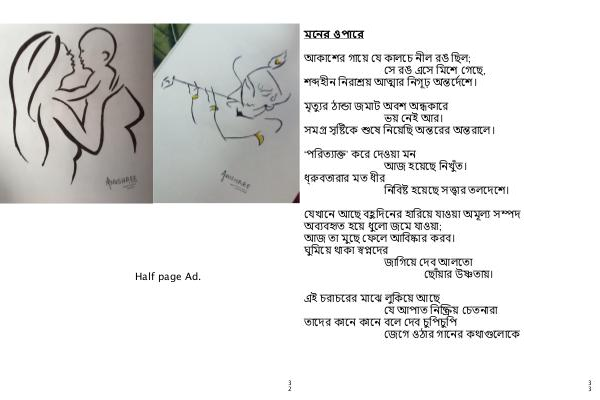 ANUSHREE
ANUSHREE
Half page Ad.
3
2
মনের ওপারে
আকাশের গায়ে যে কালচে নীল রঙ ছিল;
সে রঙ এসে মিশে গেছে,
শব্দহীন নিরাশ্রয় আত্মার নিগূঢ় অন্তর্দেশে।
মৃত্যুর ঠান্ডা জমাট অবশ অন্ধকারে
ভয় নেই আর।
সমগ্র সৃষ্টিকে শুষে নিয়েছি অন্তরের অন্তরালে।
'পরিত্যক্ত' করে দেওয়া মন
আজ হয়েছে নিখুঁত।
ধ্রুবতারার মত ধীর
নিবিষ্ট হয়েছে সত্ত্বার তলদেশে।
যেখানে আছে বহুদিনের হারিয়ে যাওয়া অমূল্য সম্পদ
অব্যবহৃত হয়ে ধুলো জমে যাওয়া;
আজ তা মুছে ফেলে আবিষ্কার করব।
ঘুমিয়ে থাকা স্বপ্নদের
জাগিয়ে দেব আলতো
ছোঁয়ার উষ্ণতায়।
এই চরাচরের মাঝে লুকিয়ে আছে
যে আপাত নিষ্ক্রিয় চেতনারা
তাদের কানে কানে বলে দেব চুপিচুপি
জেগে ওঠার গানের কথাগুলোকে
3
3